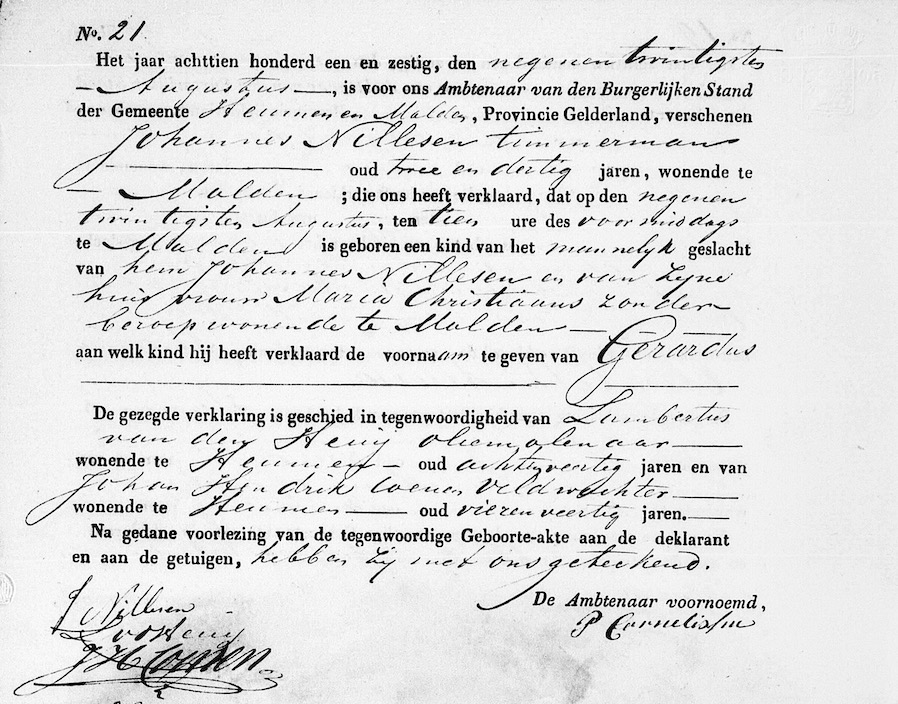 No. 21.
Het jaar achttien honderd een en zestig, den negenen twintigsten
Augustus, is voor ons Ambtenaar van den Burgerlijken Stand
der Gemeente Heumen en Malden, Provincie Gelderland, verschenen
Johannes Nillesen timmerman
oud twee en dertig jaren, wonende te
Malden ; die ons heeft verklaard, dat op den negenen
twintigsten Augustus, ten tien ure des voormiddags
te Malden is geboren een kind van het mannelyk geslacht
van hem Johannes Nillesen en van zyne
huisvrouw Maria Christiaans zonder
beroep wonende te Malden
aan welk kind hij heeft verklaard de voornaam te geven van Gerardus
De gezegde verklaring is geschied in tegenwoordigheid van Lambertus
van den oliemolenaar
wonende te Heumen oud achtenveertig jaren en van
Johan Hendrik veldwachter
wonende te Heumen oud vierenveertig jaren.
Na gedane voorlezing van de tegenwoordige Geboorte-akte aan de deklarant
en aan de getuigen, hebben zij met ons geteekend.
De Ambtenaar voornoemd,
P
J Nillesen
J H